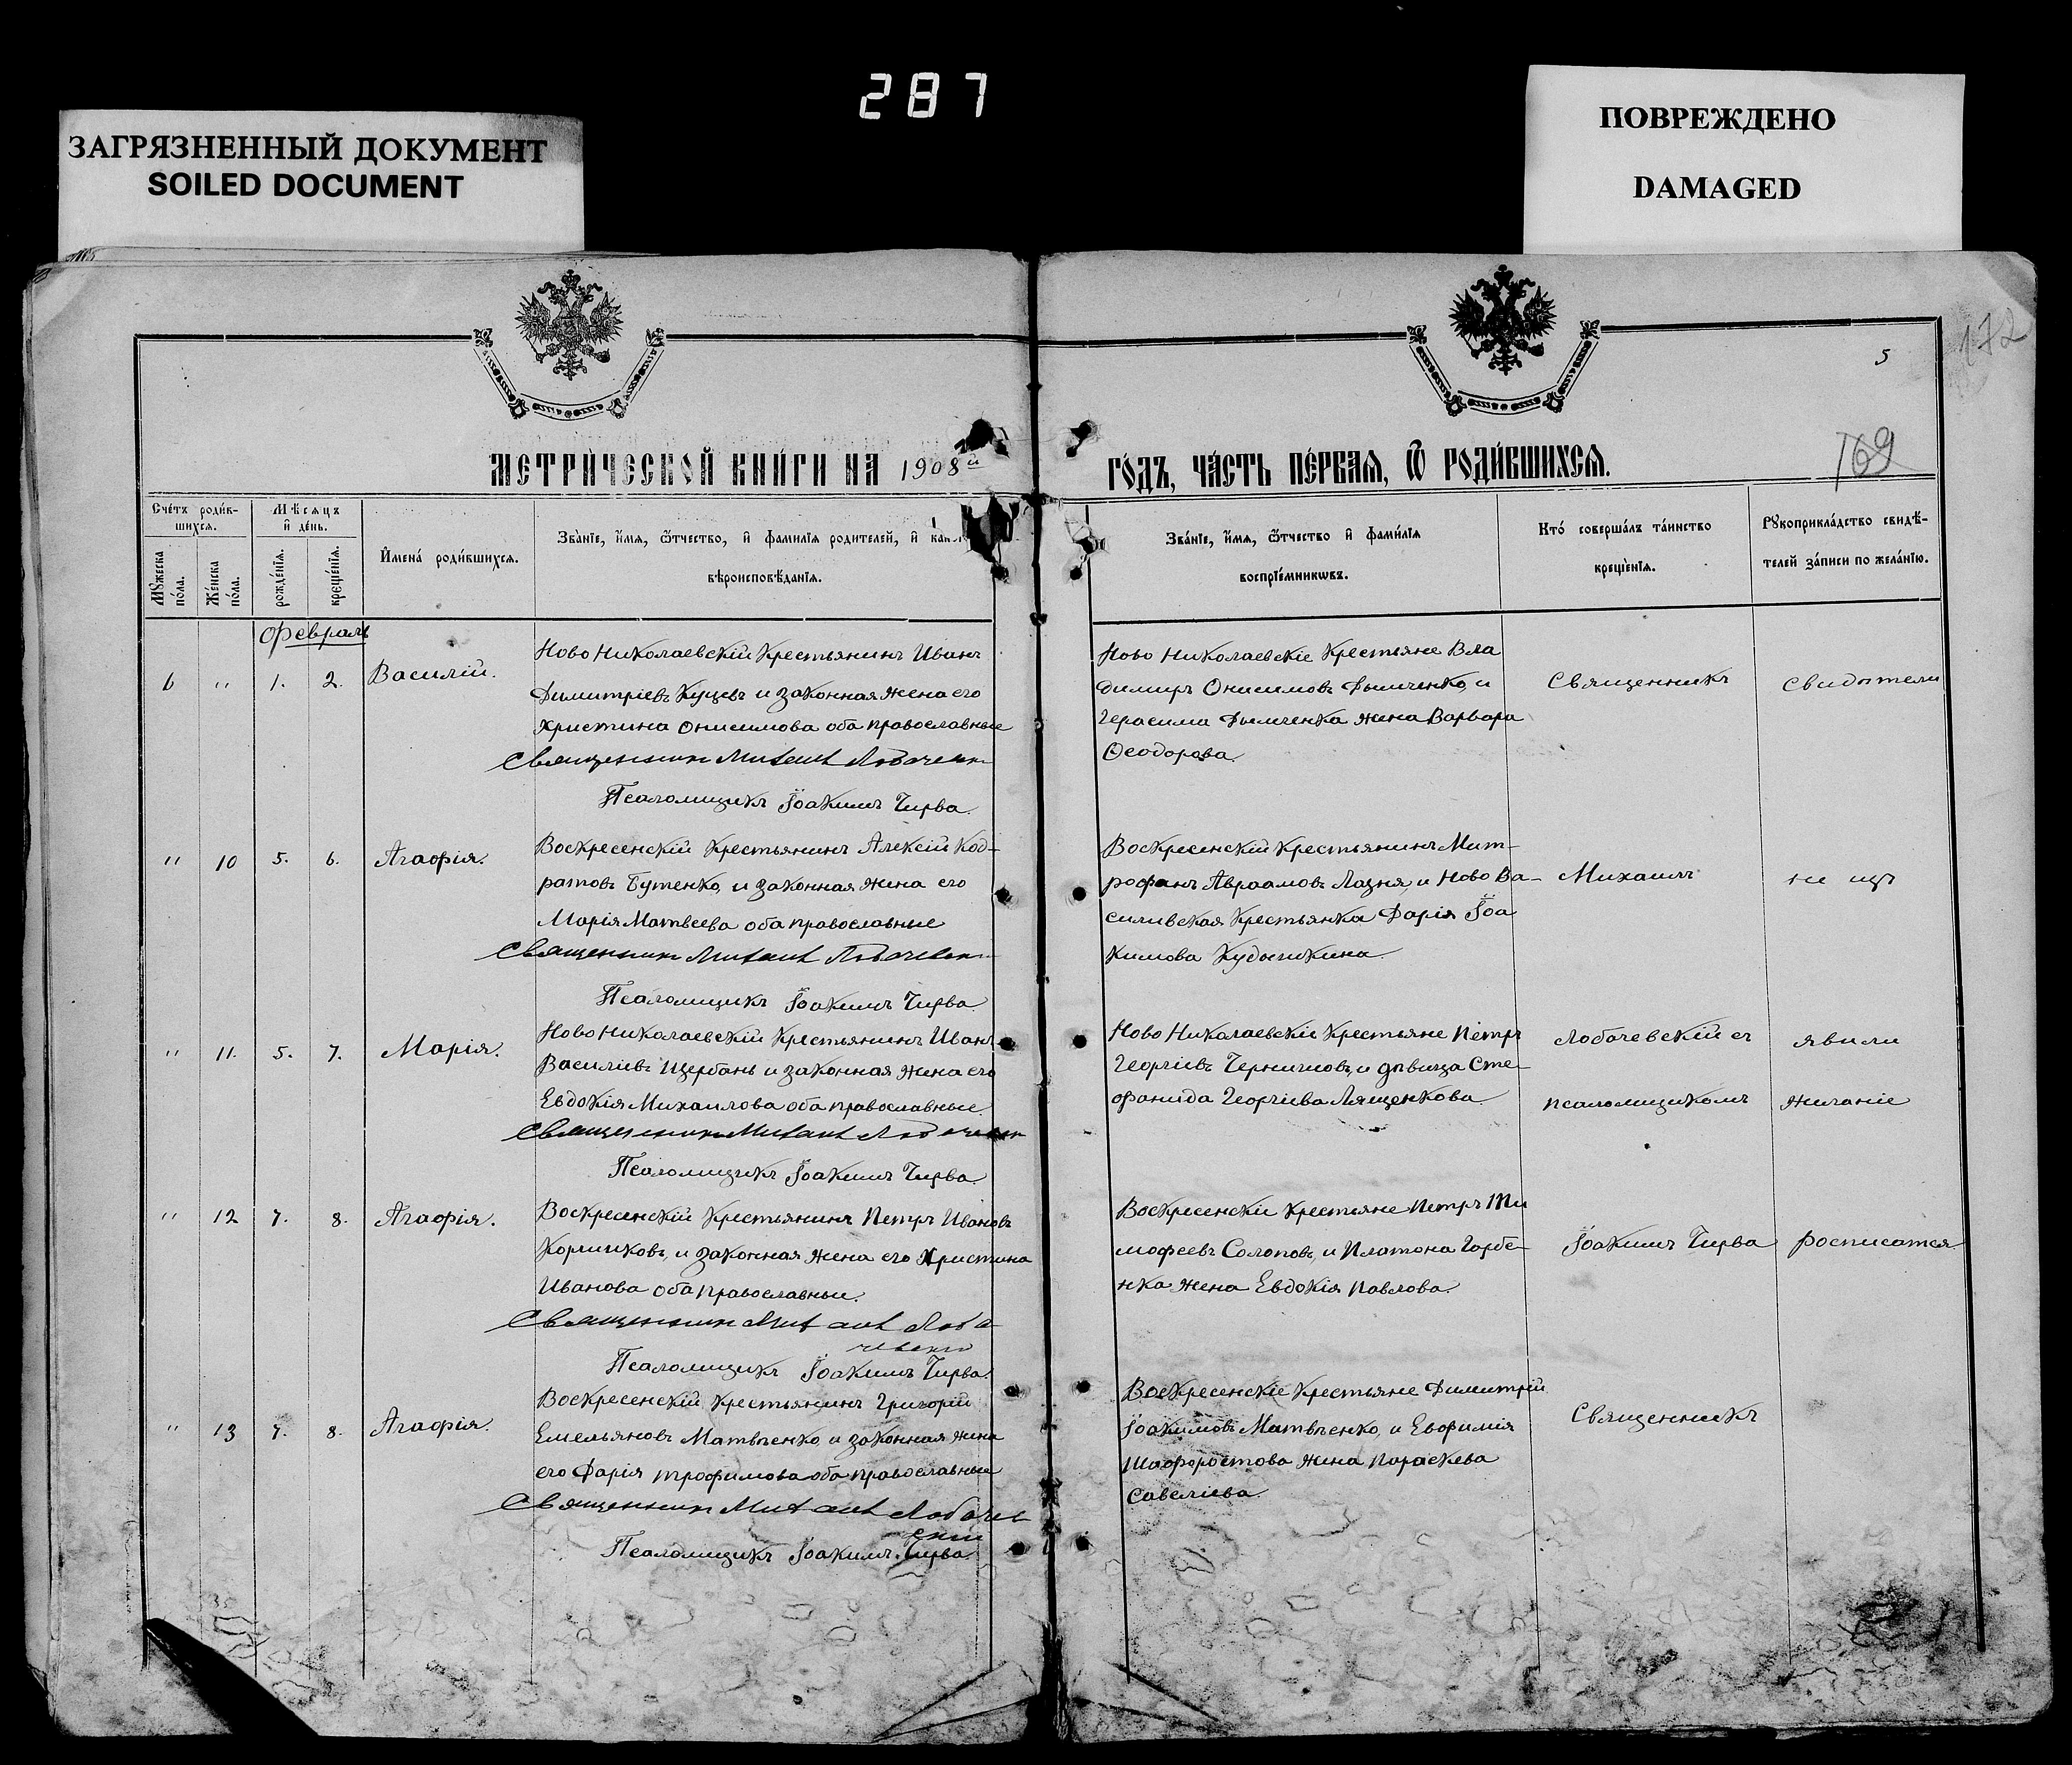 287
ЗАГРЯЗНЕННЫЙ ДОКУМЕНТ
SOILED DOCUMENT
ПОВРЕЖДЕНО
DAMAGED
172
5
169
МЕТРИ́ЧЕСКОЙ КНИ́ГИ НА 1908й
ГО́ДЪ, ЧА́СТЬ ПЕ́РВАѦ, Ѿ РОДИ́ВШИХСѦ.
Сче́тъ роди́в-
шихсѧ.
Мꙋжеска по́ла.
Же́нска по́ла.
Мѣсѧцъ
и҆ де́нь.
рожде́нїѧ.
креще́нїѧ.
И҆мена̀ роди́вшихсѧ.
Зва́нїе, и҆́мѧ, ѻ҆́тчество, и҆ фами́лїѧ родителей, и҆
вѣроисповѣ́данїѧ.
Зва́нїе, и҆́мѧ, ѻ҆́тчество и҆ фами́лїѧ
воспрїе́мникѡвъ.
Кто̀ соверша́лъ та́инство
креще́нїѧ.
Рꙋкоприкла́дство свидѣ́-
телей за́писи по жела́нїю.
Февраль
6 " 1. 2. Василій.
Ново Николаевскій Крестьянинъ Иванъ
Димитріевъ Куцевъ и законная жена его
Христина Онисимова оба православные
Священникъ Михаилъ
Псаломщикъ Іоакимъ Чирва.
Ново Николаевскіе Крестьяне Вла
димиръ Онисимовъ Дымченко, и
Герасима Дымченка жена Варвара
Ѳеодорова.
Священникъ
Свидѣтели
" 10 5. 6. Агафія.
Воскресенскій Крестьянинъ Алексій Код-
ратовъ Бутенко, и законная жена его
Марія Матвеева оба православные
Священникъ Михаилъ
Псаломщикъ Іоакимъ Чирва
Воскресенскій Крестьянинъ Мит-
рофанъ Авраамовъ Лазня, и Ново Ва-
силивская Крестьянка Дарія Іоа
кимова
Михаилъ
не изъ
" 11. 5. 7. Марія.
Ново Николаевскій Крестьянинъ Иванъ
Василіевъ Щербань и законная жена его
Евдокія Михаилова оба православные.
Священникъ Михаилъ
Псаломщикъ Іоакимъ Чирва.
Ново Николаевскіе Крестьяне Петръ
Георгіевъ и дѣвица Сте-
фанида Георгіева Лященкова.
Лобачевскій съ
псаломщикомъ
явили
желаніе
" 12 7. 8. Агафія.
Воскресенскій Крестьянинъ Петръ Ивановъ
и законная жена его Христина
Иванова оба православные.
Священникъ Михаилъ Лоба
чевскій
Псаломщикъ Іоакимъ Чирва.
Воскресенскіе Крестьяне Петръ Ти
мофеевъ Солоповъ, и Платона Горбе-
нка жена Евдокія Павлова.
Іоакимъ Чирва
росписатся
" 13 7. 8. Агафія.
Воскресенскій Крестьянинъ Григорій
Емельяновъ Матвѣенко, и законная жена
его Дарія Трофимова оба православные
Священникъ Михаилъ Лобачев
скій
Псаломщикъ Іоакимъ Чирва.
Воскресенскіе Крестьяне Димитрій
Іоакимовъ Матвѣенко, и Евфимія
Шафоростова жена Параскева
Савеліева.
Священникъ